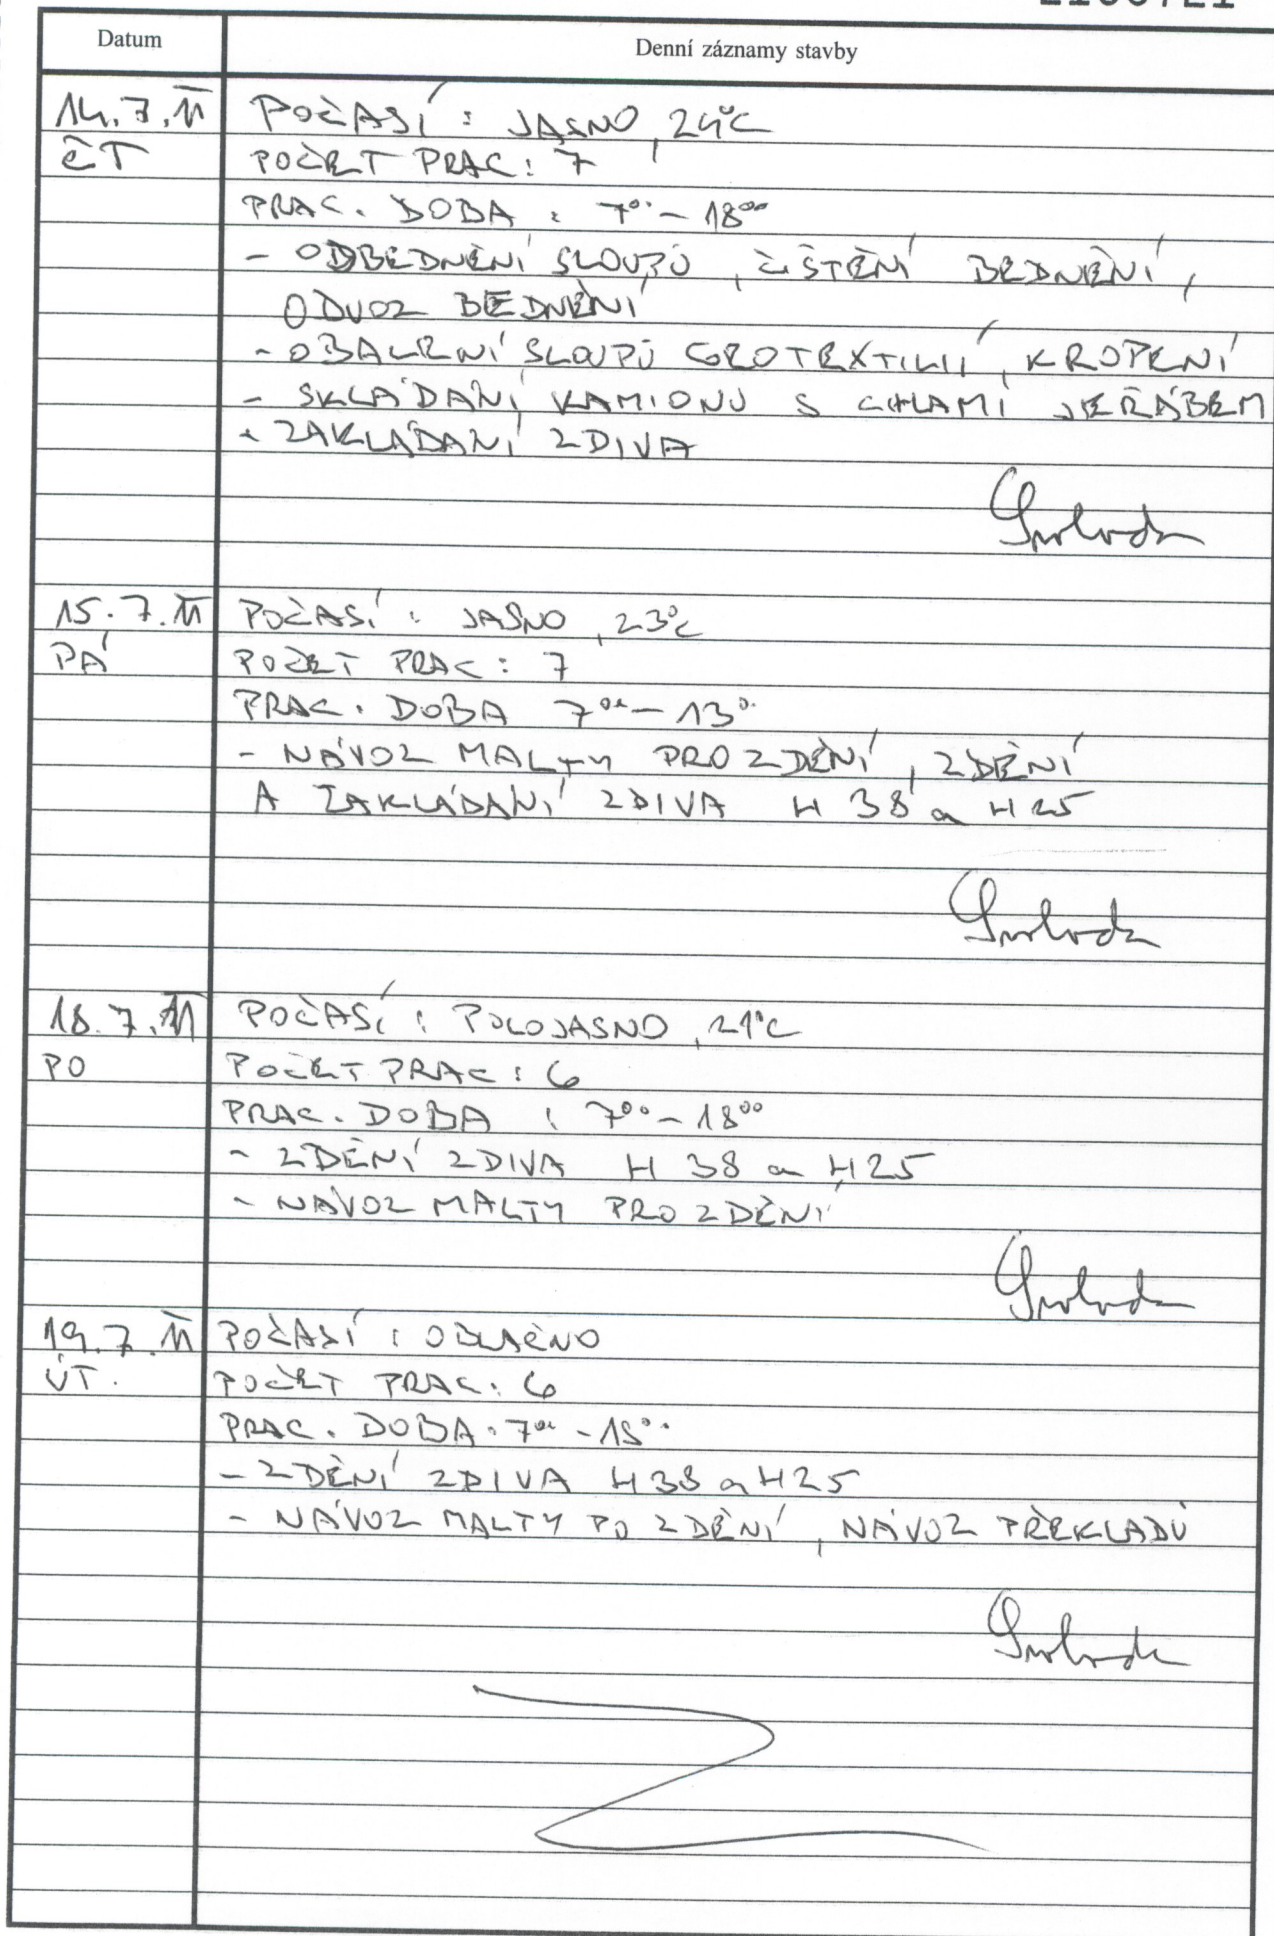 Datum
Denní záznamy stavby
14.7.11 POČASÍ : JASNO, 24°C
ČT POČET PRAC: 7
PRAC. DOBA : 7⁰⁰ - 18⁰⁰
- ODBEDNĚNÍ SLOUPŮ, ČIŠTĚNÍ BEDNĚNÍ,
ODVOZ BEDNĚNÍ
- OBALENÍ SLOUPŮ GEOTEXTILIÍ, KROPENÍ
- SKLÁDÁNÍ KAMIONU S CIHLAMI JEŘÁBEM
- ZAKLÁDÁNÍ ZDIVA
Svoboda
15.7.11 POČASÍ : JASNO, 23°C
PÁ POČET PRAC: 7
PRAC. DOBA 7⁰⁰ - 13⁰⁰
- NÁVOZ MALTY PRO ZDĚNÍ, ZDĚNÍ
A ZAKLÁDÁNÍ ZDIVA H 38 a H 25
Svoboda
18.7.11 POČASÍ : POLOJASNO, 21°C
PO POČET PRAC: 6
PRAC. DOBA : 7⁰⁰ - 18⁰⁰
- ZDĚNÍ ZDIVA H 38 a H25
- NÁVOZ MALTY PRO ZDĚNÍ
Svoboda
19.7.11 POČASÍ : OBLAČNO
ÚT. POČET PRAC: 6
PRAC. DOBA: 7⁰⁰ - 18⁰⁰
- ZDĚNÍ ZDIVA H38 a H25
- NÁVOZ MALTY PO ZDĚNÍ, NÁVOZ PŘEKLADŮ
Svoboda